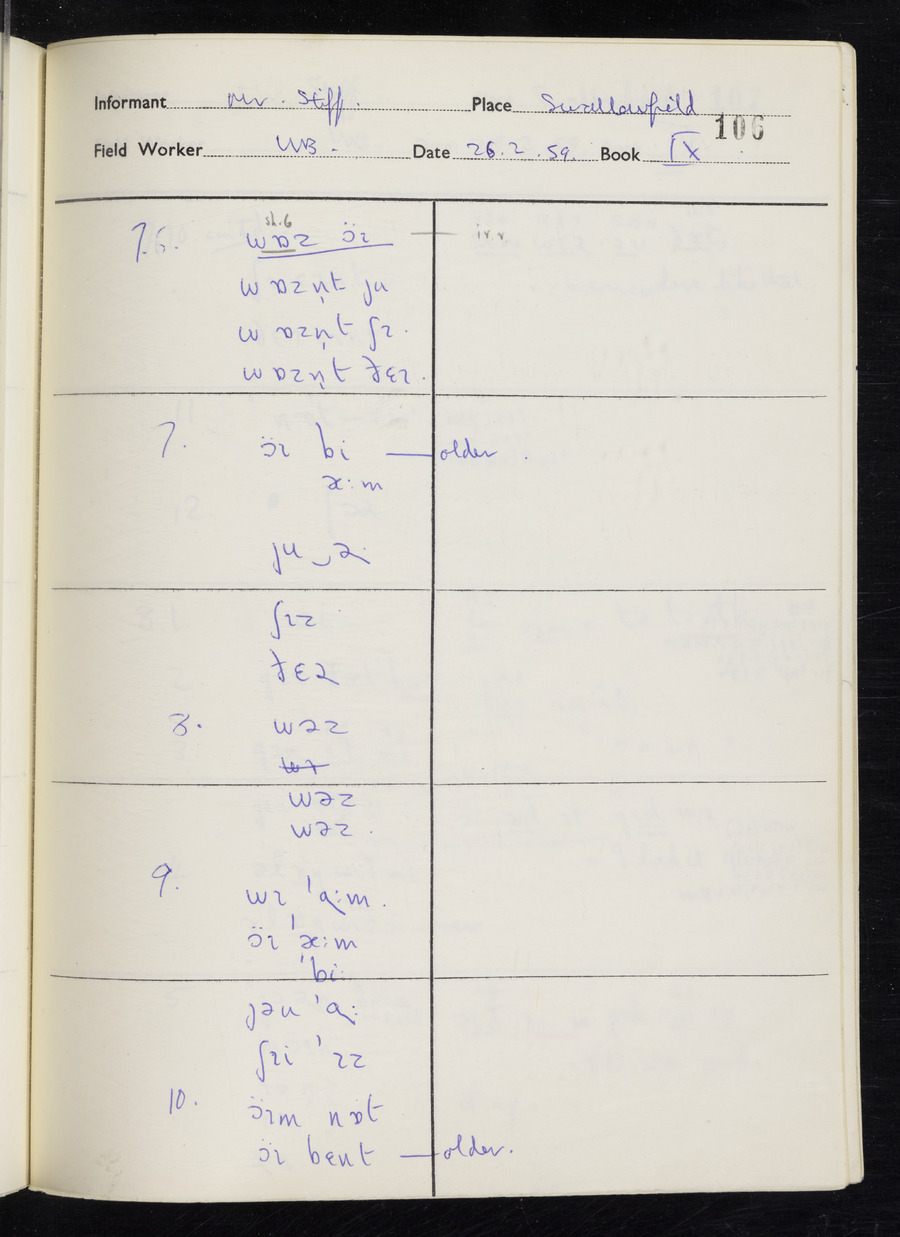 Informant Mr. Stiff. Place Swallowfield
106
Field Worker WB. Date 26.2.59. Book IX
sh.6
7.6. wɒz ɔ̈ɪ — i.v.v.
wɒzn̩t ju
wɒzn̩t ʃɪ.
wɒzn̩t ðɛɪ.
7. ɔ̈ɪ bi — older.
æ:m
ju‿ə
ʃɪz
ðɛə
8. wəz
wəz
wəz.
9. wɪ 'ɑ:m.
ɔ̈ɪ 'æ:m
'bi:
jəu 'ɑ:
ʃɪi 'ɪz
10. ɔ̈ɪm nɒt
ɔ̈ɪ bɛnt — older.